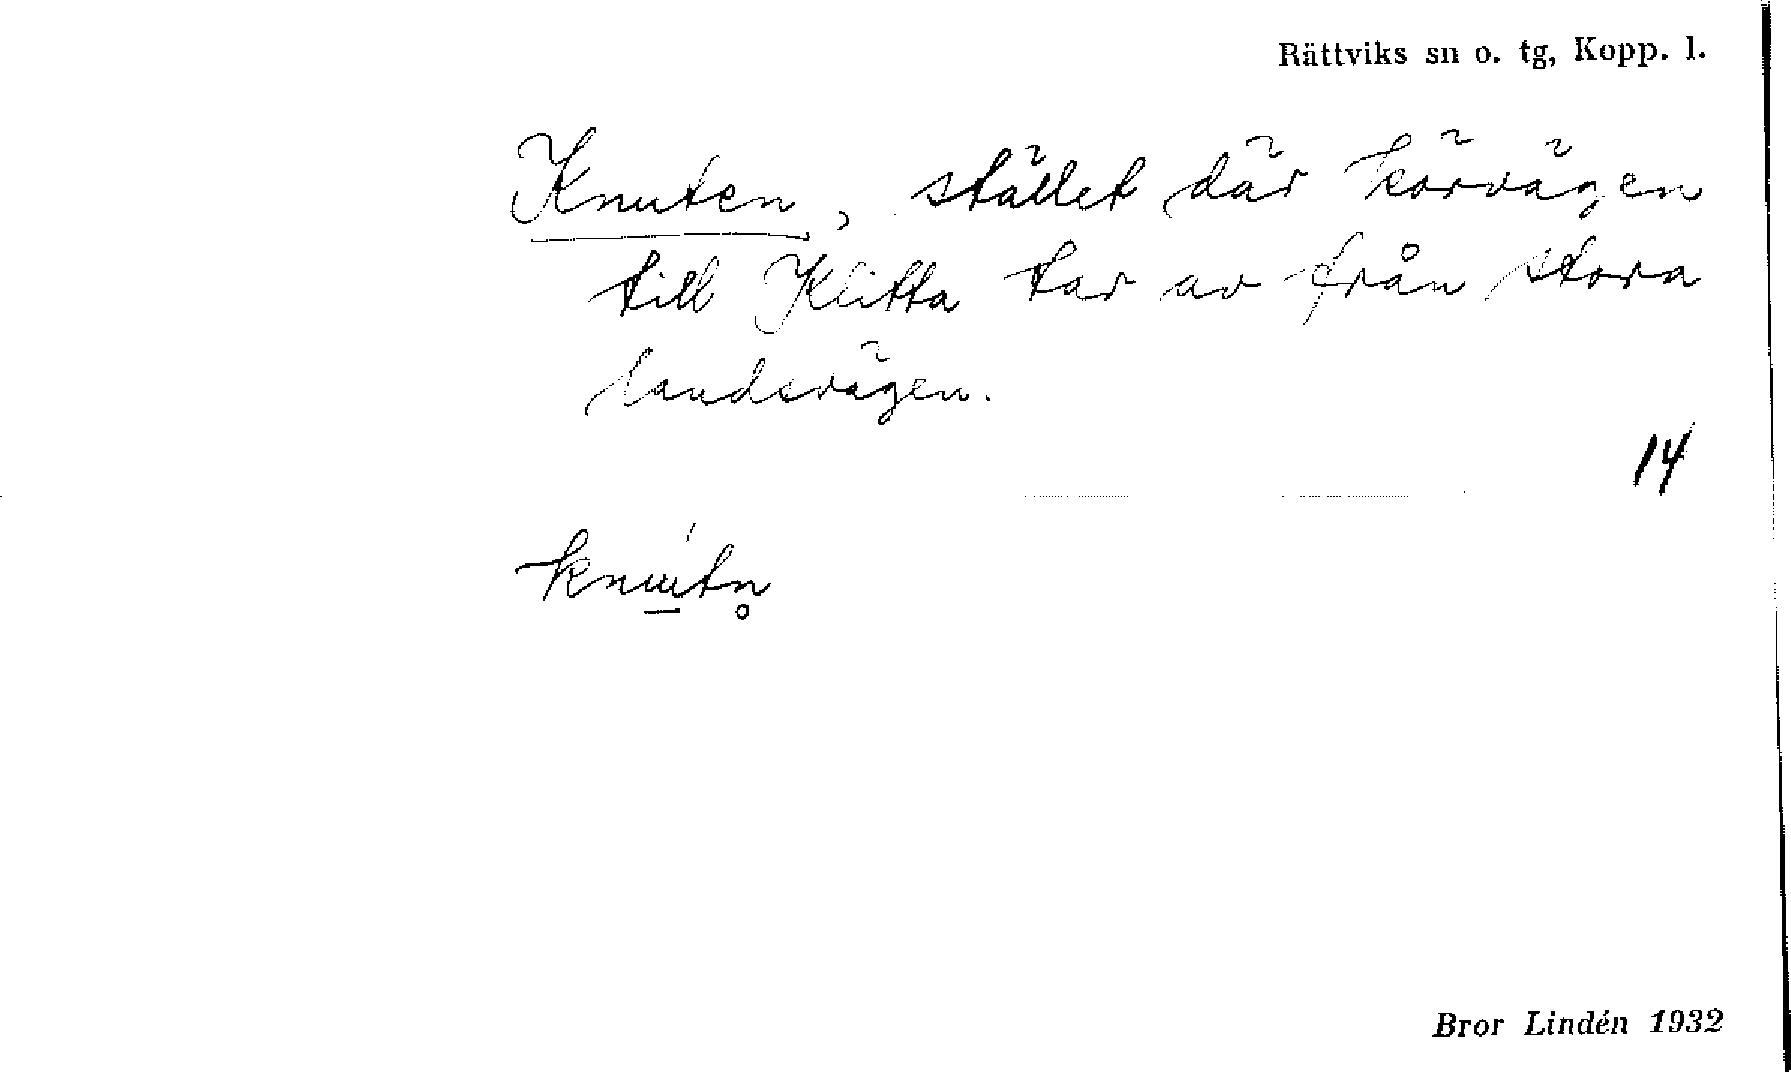 Rättviks sn o. tg, Kopp. l.
Knuten, stället där körvägen
till Klitta tar av från stora
landsvägen.
14
knɯ̱́tn̥
Bror Lindén 1932